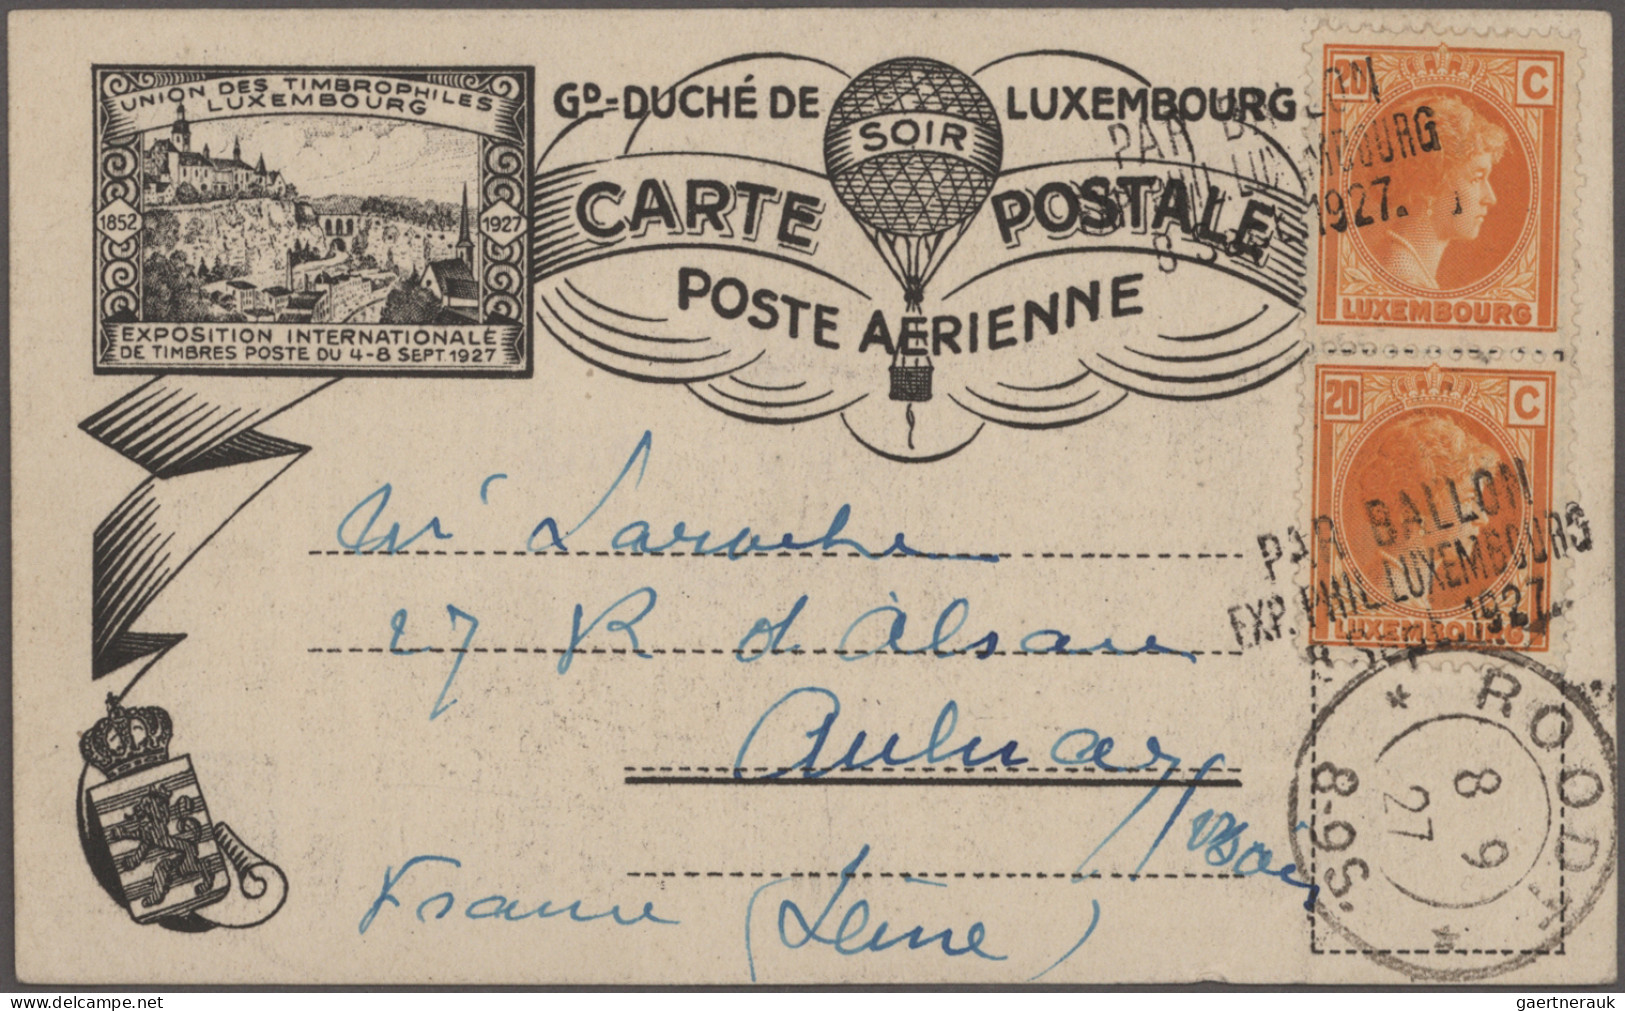 UNION DES TIMBROPHILES
LUXEMBOURG
1852
1927
EXPOSITION INTERNATIONALE
DE TIMBRES POSTE DU 4-8 SEPT. 1927
GD-DUCHÉ DE LUXEMBOURG
SOIR
CARTE POSTALE
POSTE AERIENNE
20 C
LUXEMBOURG
PAR BALLON
LUXEMBOURG
1927.
20 C
LUXEMBOURG
PAR BALLON
EXP. PHIL. LUXEMBOURG
8 SEPT. 1927.
Mr Laroche
27 R d'Alsace
Aulnay s/
Bois
France (Seine)
ROODT
8 9
27
8-9S.
delcampe.net
gaertnerauk